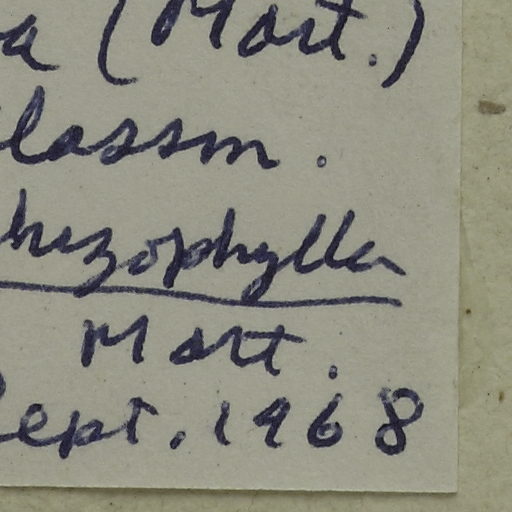 a (Mart.)
lassm.
hizophylla
Mart.
Sept. 1968